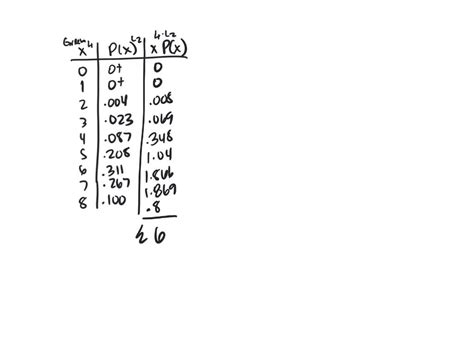 Given L1 L2 L1·L2
x P(x) x P(x)
0 0+ 0
1 0+ 0
2 .004 .008
3 .023 .069
4 .087 .348
5 .208 1.04
6 .311 1.866
7 .267 1.869
8 .100 .8
Σ 6